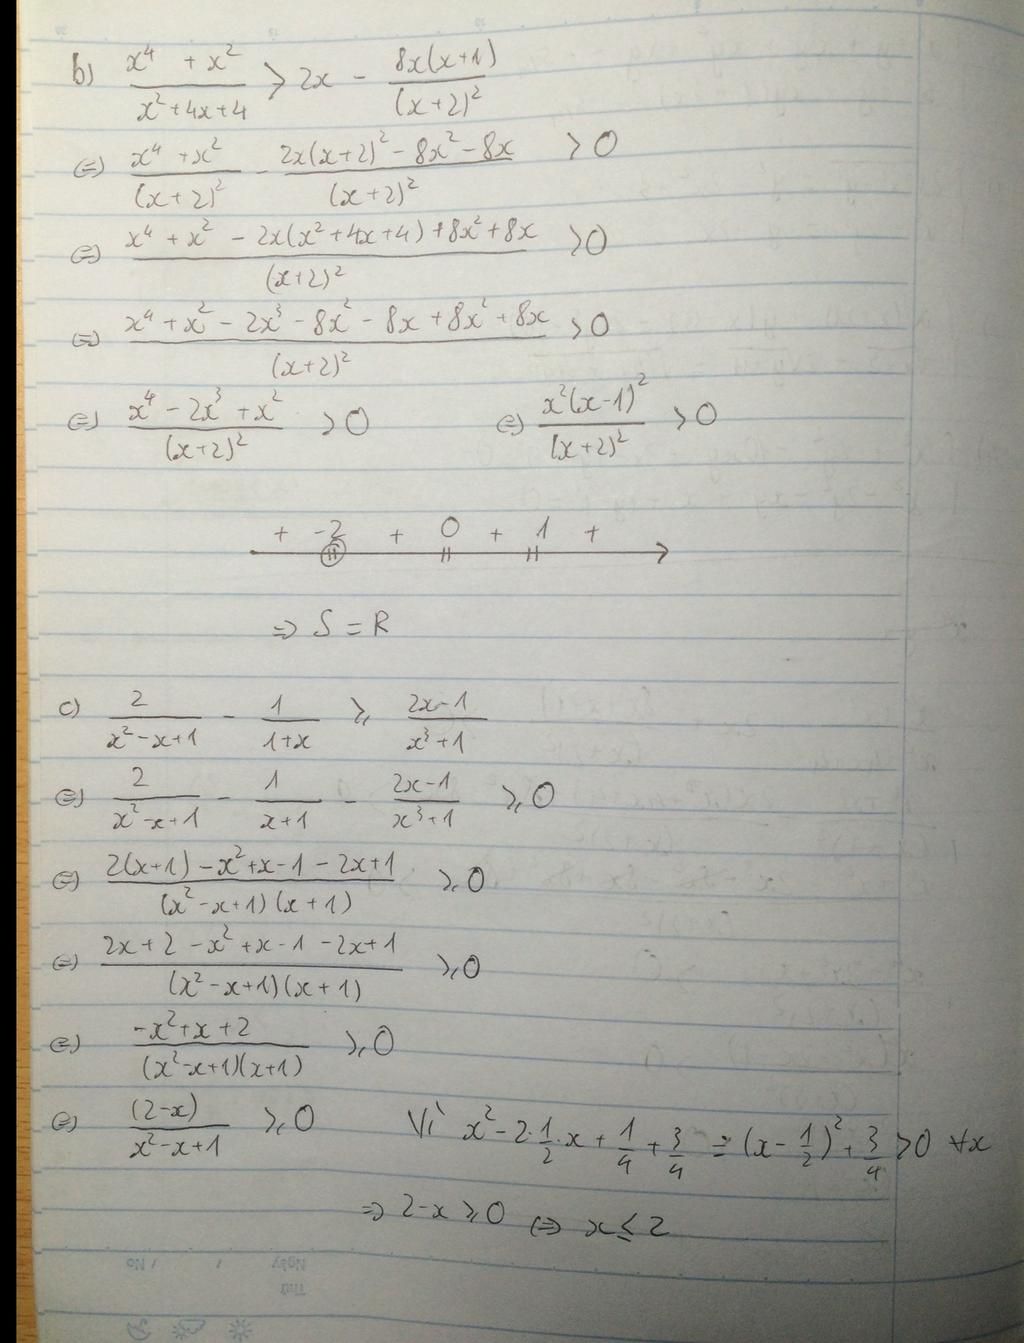 b) (x⁴ + x²)/(x²+4x+4) > 2x - 8x(x+1)/(x+2)²
(=) (x⁴ + x²)/(x+2)² - (2x(x+2)² - 8x² - 8x)/(x+2)² > 0
(=) (x⁴ + x² - 2x(x²+4x+4) + 8x² + 8x)/(x+2)² > 0
(=) (x⁴ + x² - 2x³ - 8x² - 8x + 8x² + 8x)/(x+2)² > 0
(=) (x⁴ - 2x³ + x²)/(x+2)² > 0 (=) x²(x-1)²/(x+2)² > 0
+ -2 + 0 + 1 +
=> S = R
c) 2/(x²-x+1) - 1/(1+x) ≥ (2x-1)/(x³+1)
(=) 2/(x²-x+1) - 1/(x+1) - (2x-1)/(x³+1) ≥ 0
(=) (2(x+1) - x² + x - 1 - 2x + 1)/((x²-x+1)(x+1)) ≥ 0
(=) (2x + 2 - x² + x - 1 - 2x + 1)/((x²-x+1)(x+1)) ≥ 0
(=) (-x² + x + 2)/((x²-x+1)(x+1)) ≥ 0
(=) (2-x)/(x²-x+1) ≥ 0 Vì x² - 2·1/2·x + 1/4 + 3/4 = (x - 1/2)² + 3/4 > 0 ∀x
=> 2-x ≥ 0 (=) x ≤ 2
Ngày / / No
Thứ